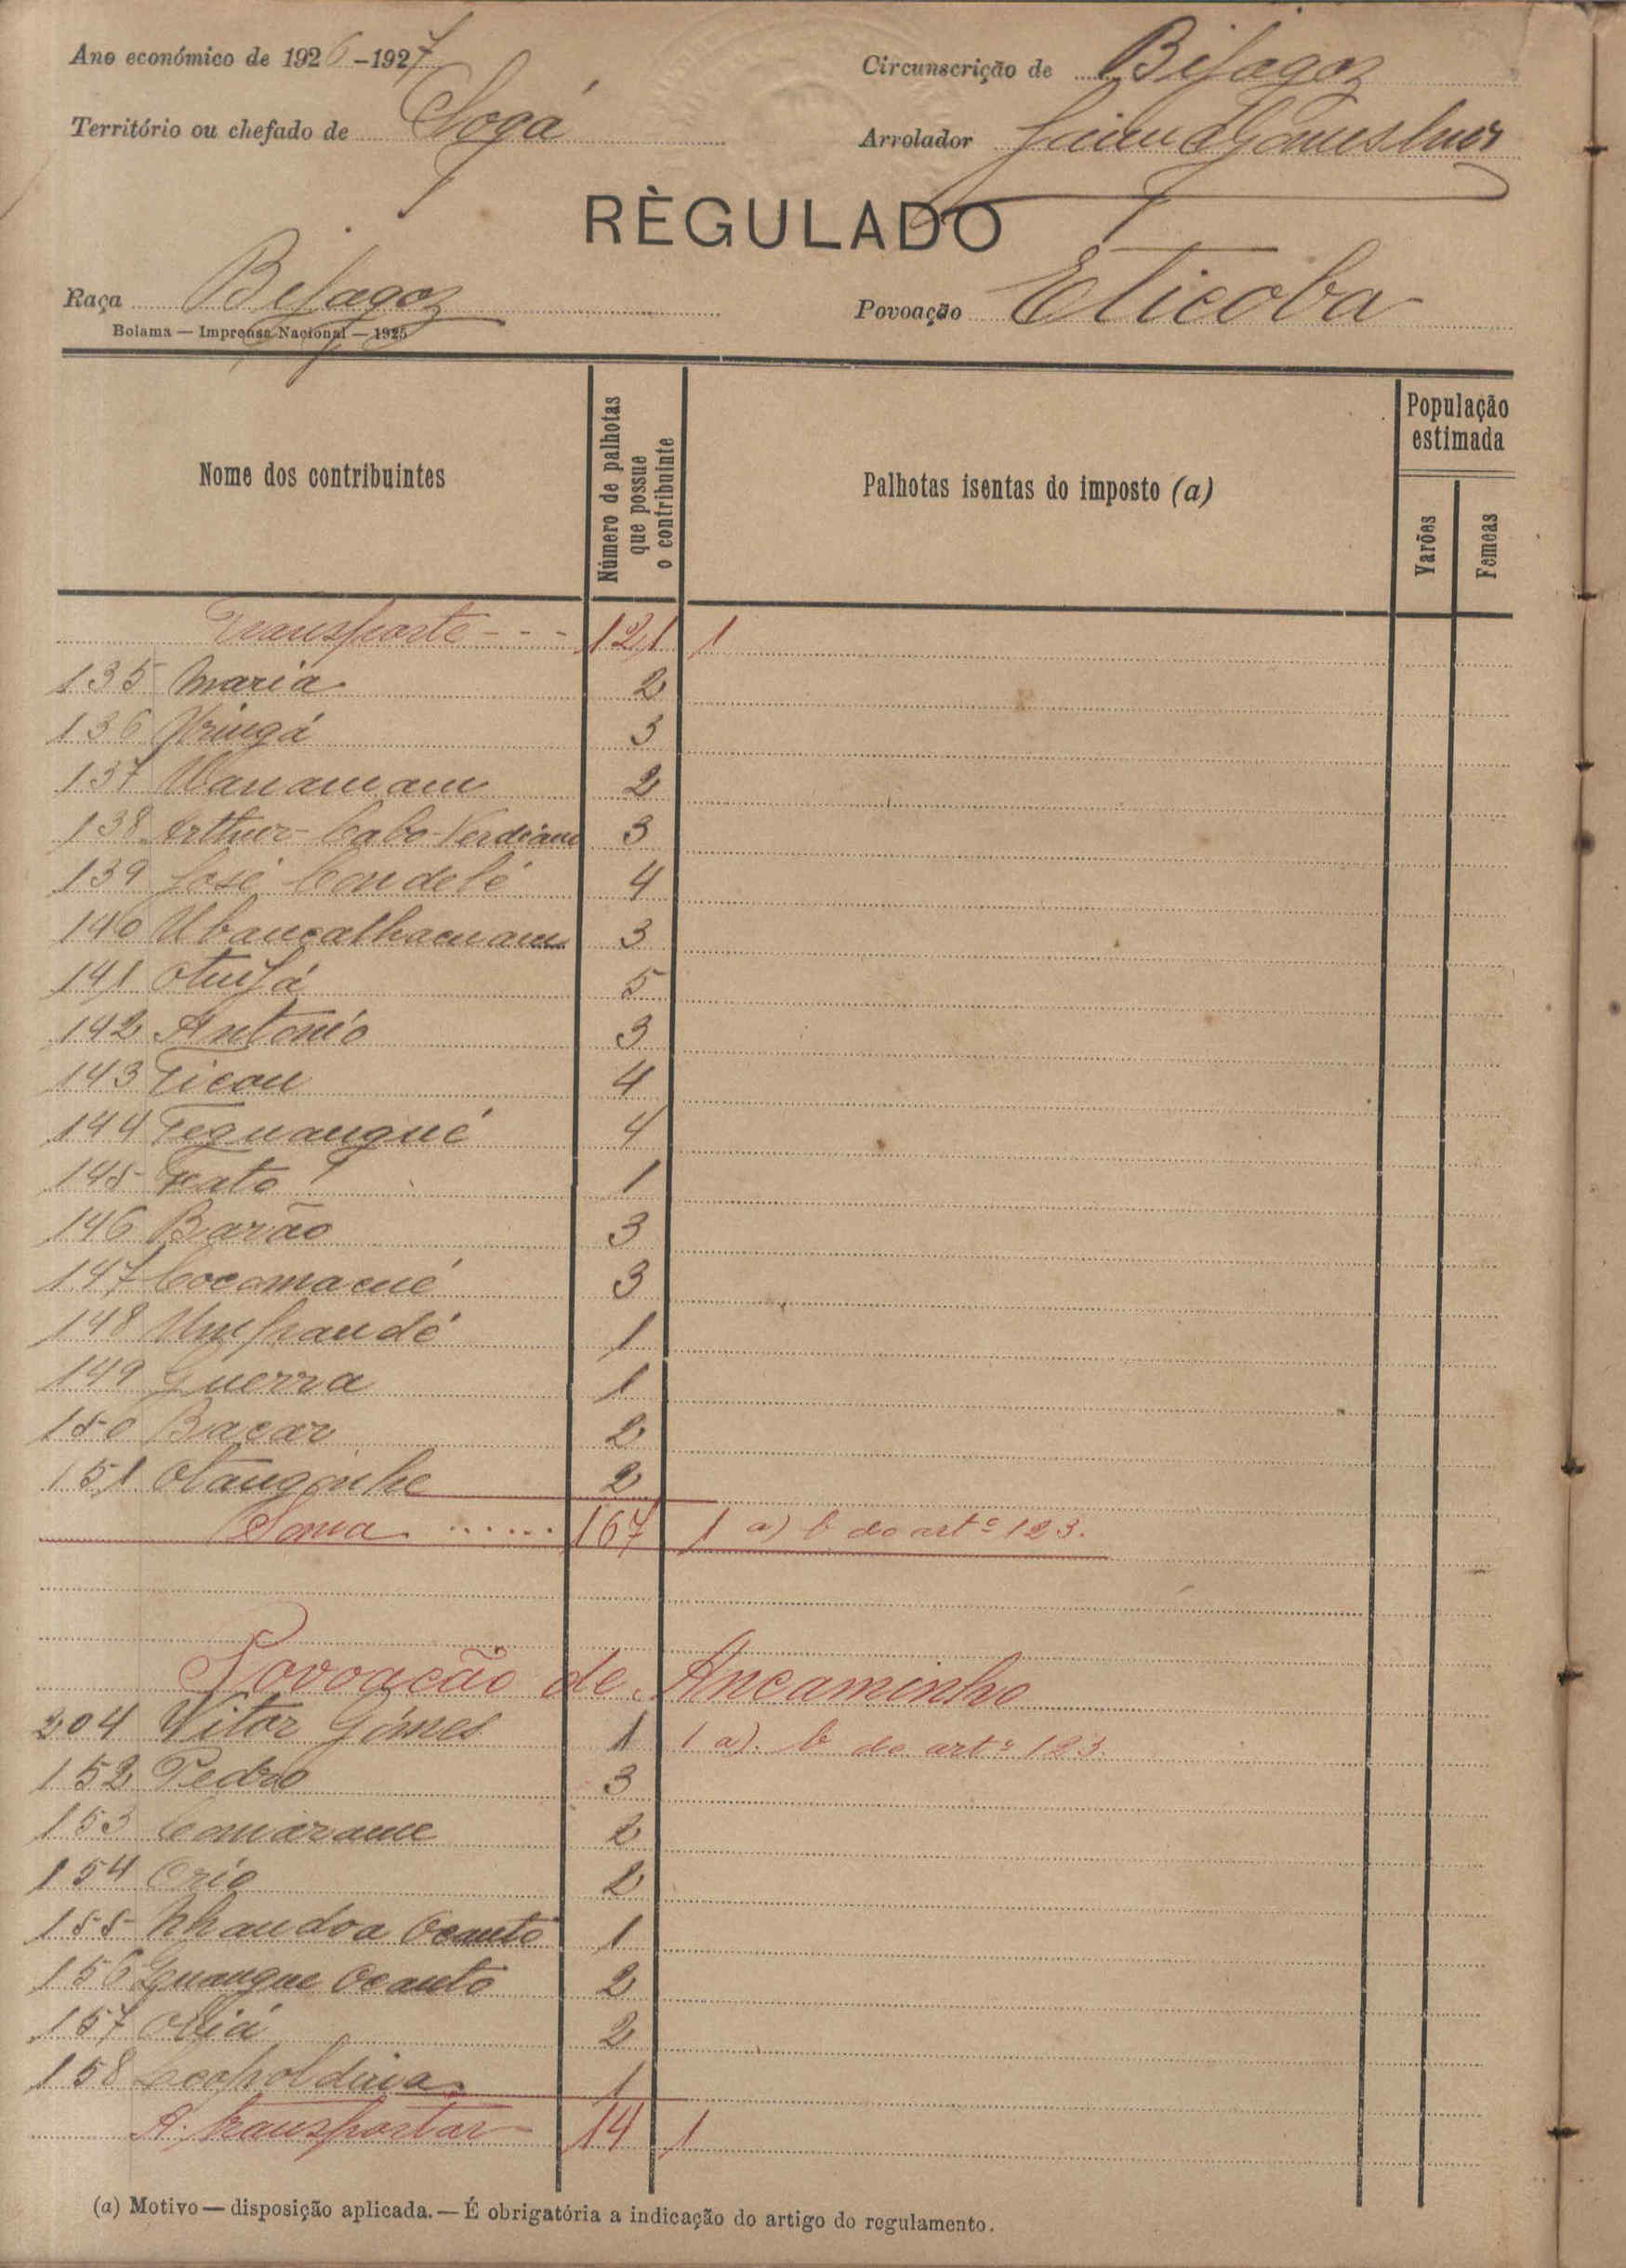 Ano económico de 1926-1927
Circunscrição de Bijagoz
Território ou chefado de Sogá
Arrolador Jaime Gomes
RÈGULADO
Raça Bijagoz
Povoação Eticoba
Bolama — Imprensa Nacional — 1925
Nome dos contribuintes
Número de palhotas que possue o contribuinte
Palhotas isentas do imposto (a)
População estimada
Varões
Femeas
Transporte - - - 121 1
135 Maria 2
136 3
137 2
138 Arthur Cabo-Verdiano 3
139 José Condelé 4
140 3
141 5
142 António 3
143 Ticou 4
144 Teguangué 4
145 1
146 Barão 3
147 3
148 1
149 Guerra 1
150 Bacar 2
151 2
Soma ...... 167 1 a) b do artº 123.
Povoação de Ancaminho
204 Vitor Gómes 1 1 a). b do artº 123.
152 Pedro 3
153 2
154 Orió 2
155 Ocanto 1
156 Ocanto 2
157 2
158 Leopoldina 1
A transportar 14 1
(a) Motivo — disposição aplicada. — É obrigatória a indicação do artigo do regulamento.